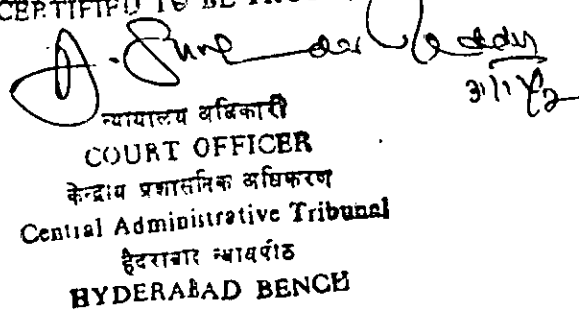 CERTIFIED TO BE TRUE
न्यायालय अधिकारी
COURT OFFICER
केन्द्रीय प्रशासनिक अधिकरण
Central Administrative Tribunal
हैदराबाद न्यायपीठ
HYDERABAD BENCH